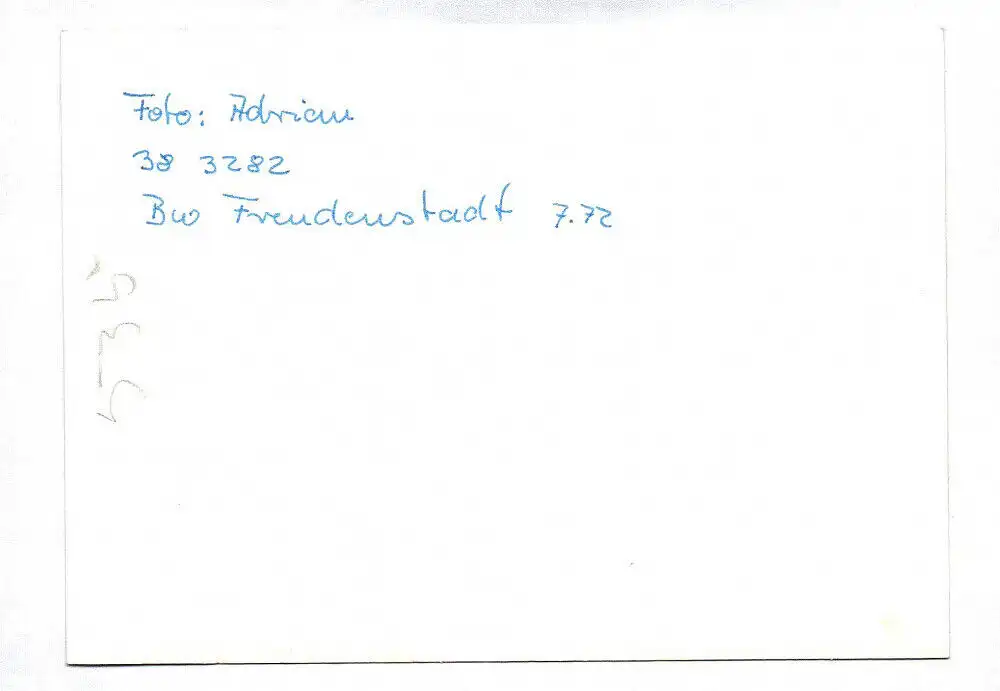 Foto: Adrian
38 3282
Bw Freudenstadt 7.72